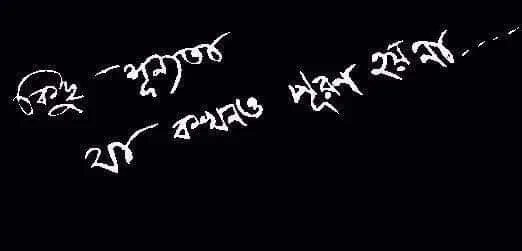 কিছু শূন্যতা
যা কখনও পূরণ হয় না......